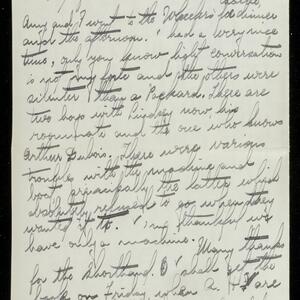 Amy and I went to the Wheelers for dinner
and the afternoon. I had a very nice
time, only you know light conversation
is not my forte and the others were
silenter than a Packard. There are
two boys with Lindsey now his
roommate and the one who knows
Arthur Dubois. There were various
troubles with the machine and
boat principally the latter which
absolutely refused to go when they
wanted it to. I'm thankful we
have only a machine. Many thanks
for the shorthand. I shall get the
book on Friday when A. H. are